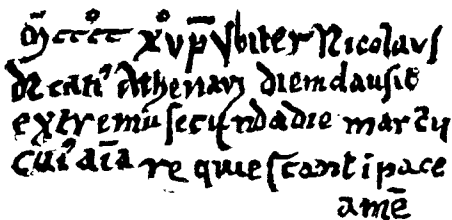 M cccc xv p̄ƀbiter Nicolaus
decan' Athenaru diem clausit
extremū secunda die martii
cui' aīa requiescant i pace
amē